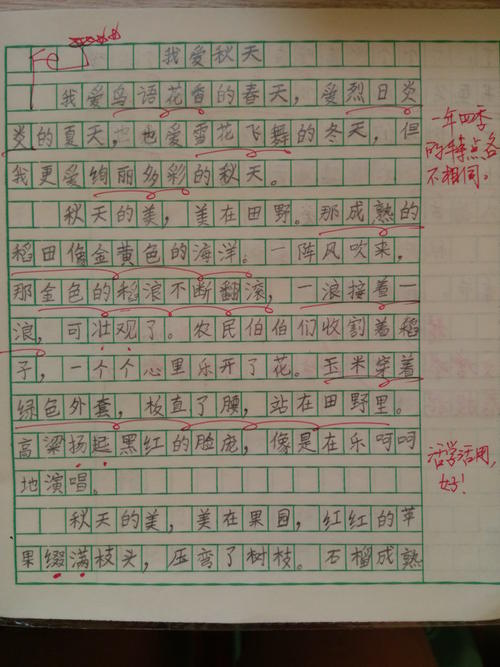 我爱秋天
我爱鸟语花香的春天，爱烈日炎
炎的夏天，也爱雪花飞舞的冬天，但
我更爱绚丽多彩的秋天。
秋天的美，美在田野。那成熟的
稻田像金黄色的海洋。一阵风吹来，
那金色的稻浪不断翻滚，一浪接着一
浪，可壮观了。农民伯伯们收割着稻
子，一个个心里乐开了花。玉米穿着
绿色外套，板直了腰，站在田野里。
高粱扬起黑红的脸庞，像是在乐呵呵
地演唱。
秋天的美，美在果园，红红的苹
果缀满枝头，压弯了树枝。石榴成熟
一年四季
的特点各
不相同。
活学活用，
好！